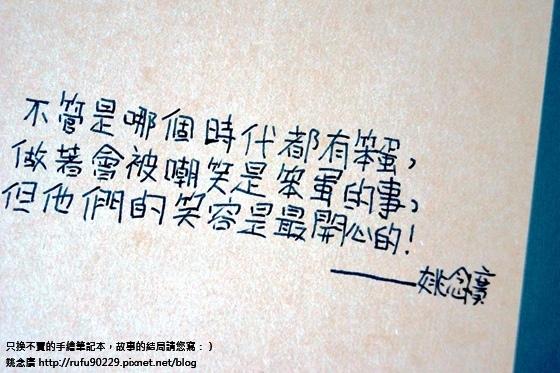 不管是哪個時代都有笨蛋，
做著會被嘲笑是笨蛋的事，
但他們的笑容是最開心的！
——姚念廣
只換不賣的手繪筆記本，故事的結局請您寫：）
姚念廣 http://rufu90229.pixnet.net/blog